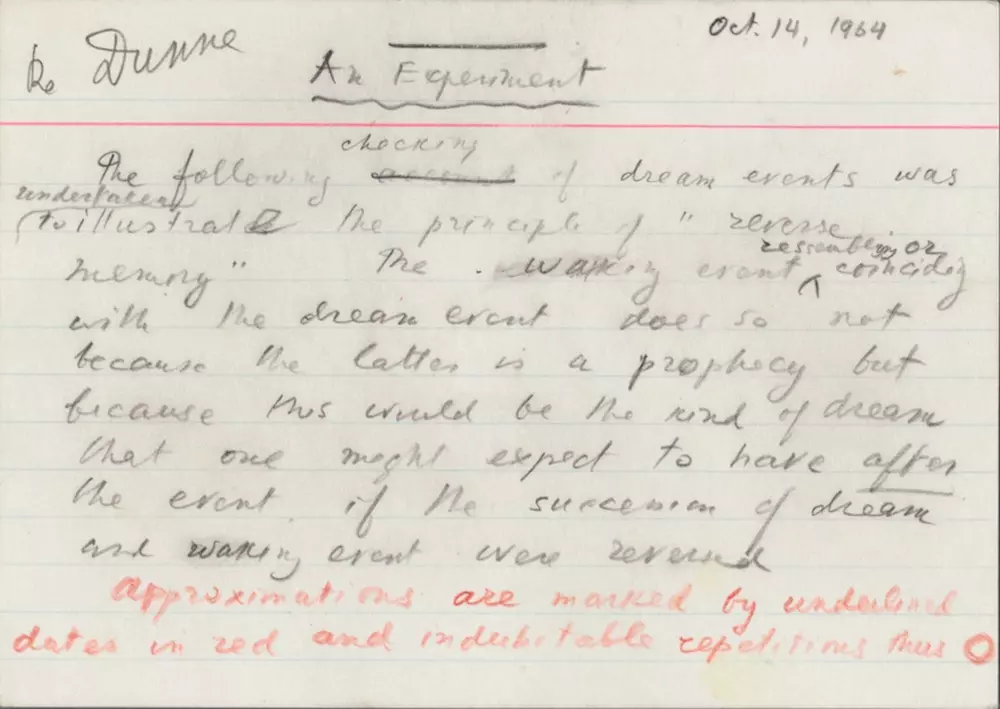 Oct. 14, 1964
Re Dunne
An Experiment
checking
The following account of dream events was
undertaken
to illustrate the principle of "reverse
ressembling or
memory" The waking event ^ coinciding
with the dream event does so not
because the latter is a prophecy but
because this would be the kind of dream
that one might expect to have after
the event if the succession of dream
and waking event were reversed
Approximations are marked by underlined
dates in red and indubitable repetitions thus O